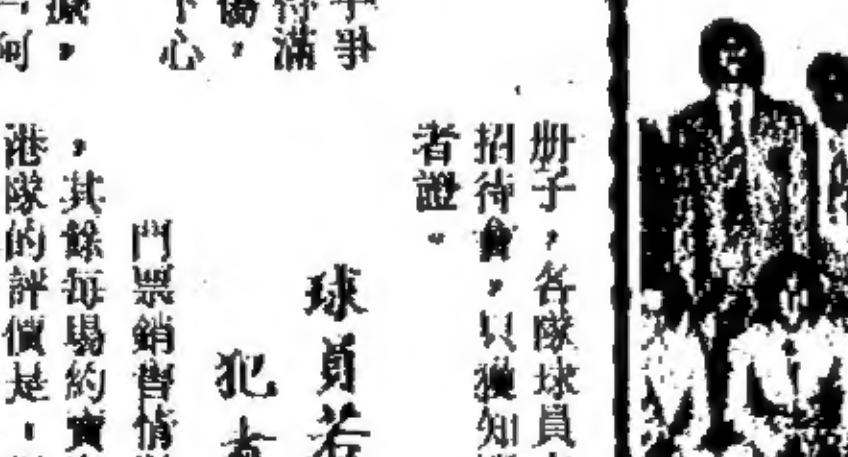 册子，各隊球員
招待會，只獲知
者證。
球員若
犯
門票銷售情
，其餘每場約賣
港隊的評價是，
爭
待滿
傷，
下心
減，
何